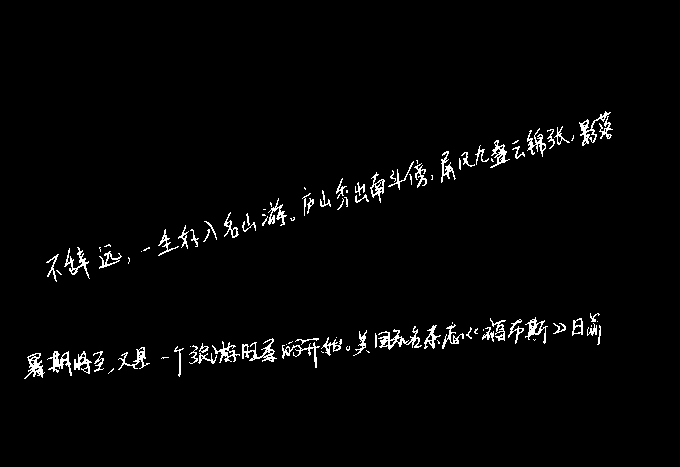 不辞远，一生好入名山游。庐山秀出南斗傍，屏风九叠云锦张，影落
暑期将至，又是一个旅游旺季的开始。美国知名杂志《福布斯》日前